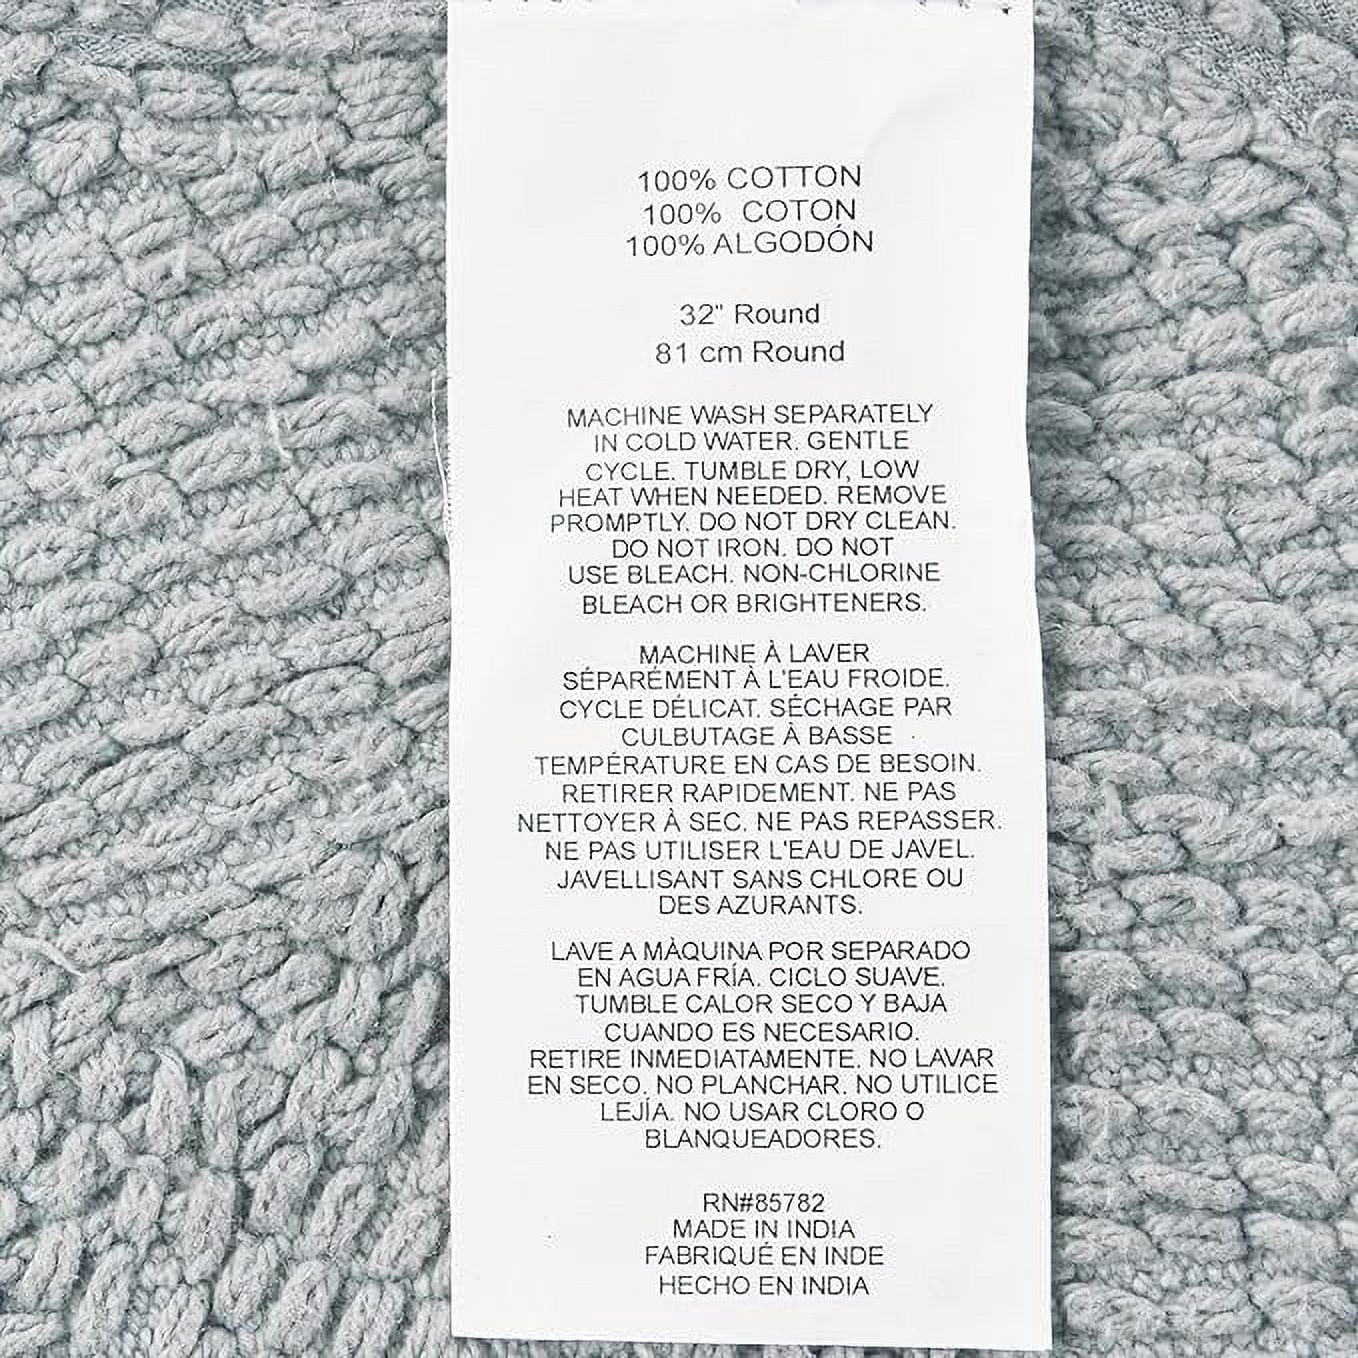 100% COTTON
100% COTON
100% ALGODÓN
32" Round
81 cm Round
MACHINE WASH SEPARATELY
IN COLD WATER. GENTLE
CYCLE. TUMBLE DRY, LOW
HEAT WHEN NEEDED. REMOVE
PROMPTLY. DO NOT DRY CLEAN.
DO NOT IRON. DO NOT
USE BLEACH. NON-CHLORINE
BLEACH OR BRIGHTENERS.
MACHINE À LAVER
SÉPARÉMENT À L'EAU FROIDE.
CYCLE DÉLICAT. SÉCHAGE PAR
CULBUTAGE À BASSE
TEMPÉRATURE EN CAS DE BESOIN.
RETIRER RAPIDEMENT. NE PAS
NETTOYER À SEC. NE PAS REPASSER.
NE PAS UTILISER L'EAU DE JAVEL.
JAVELLISANT SANS CHLORE OU
DES AZURANTS.
LAVE A MÀQUINA POR SEPARADO
EN AGUA FRÍA. CICLO SUAVE.
TUMBLE CALOR SECO Y BAJA
CUANDO ES NECESARIO.
RETIRE INMEDIATAMENTE. NO LAVAR
EN SECO. NO PLANCHAR. NO UTILICE
LEJÍA. NO USAR CLORO O
BLANQUEADORES.
RN#85782
MADE IN INDIA
FABRIQUÉ EN INDE
HECHO EN INDIA